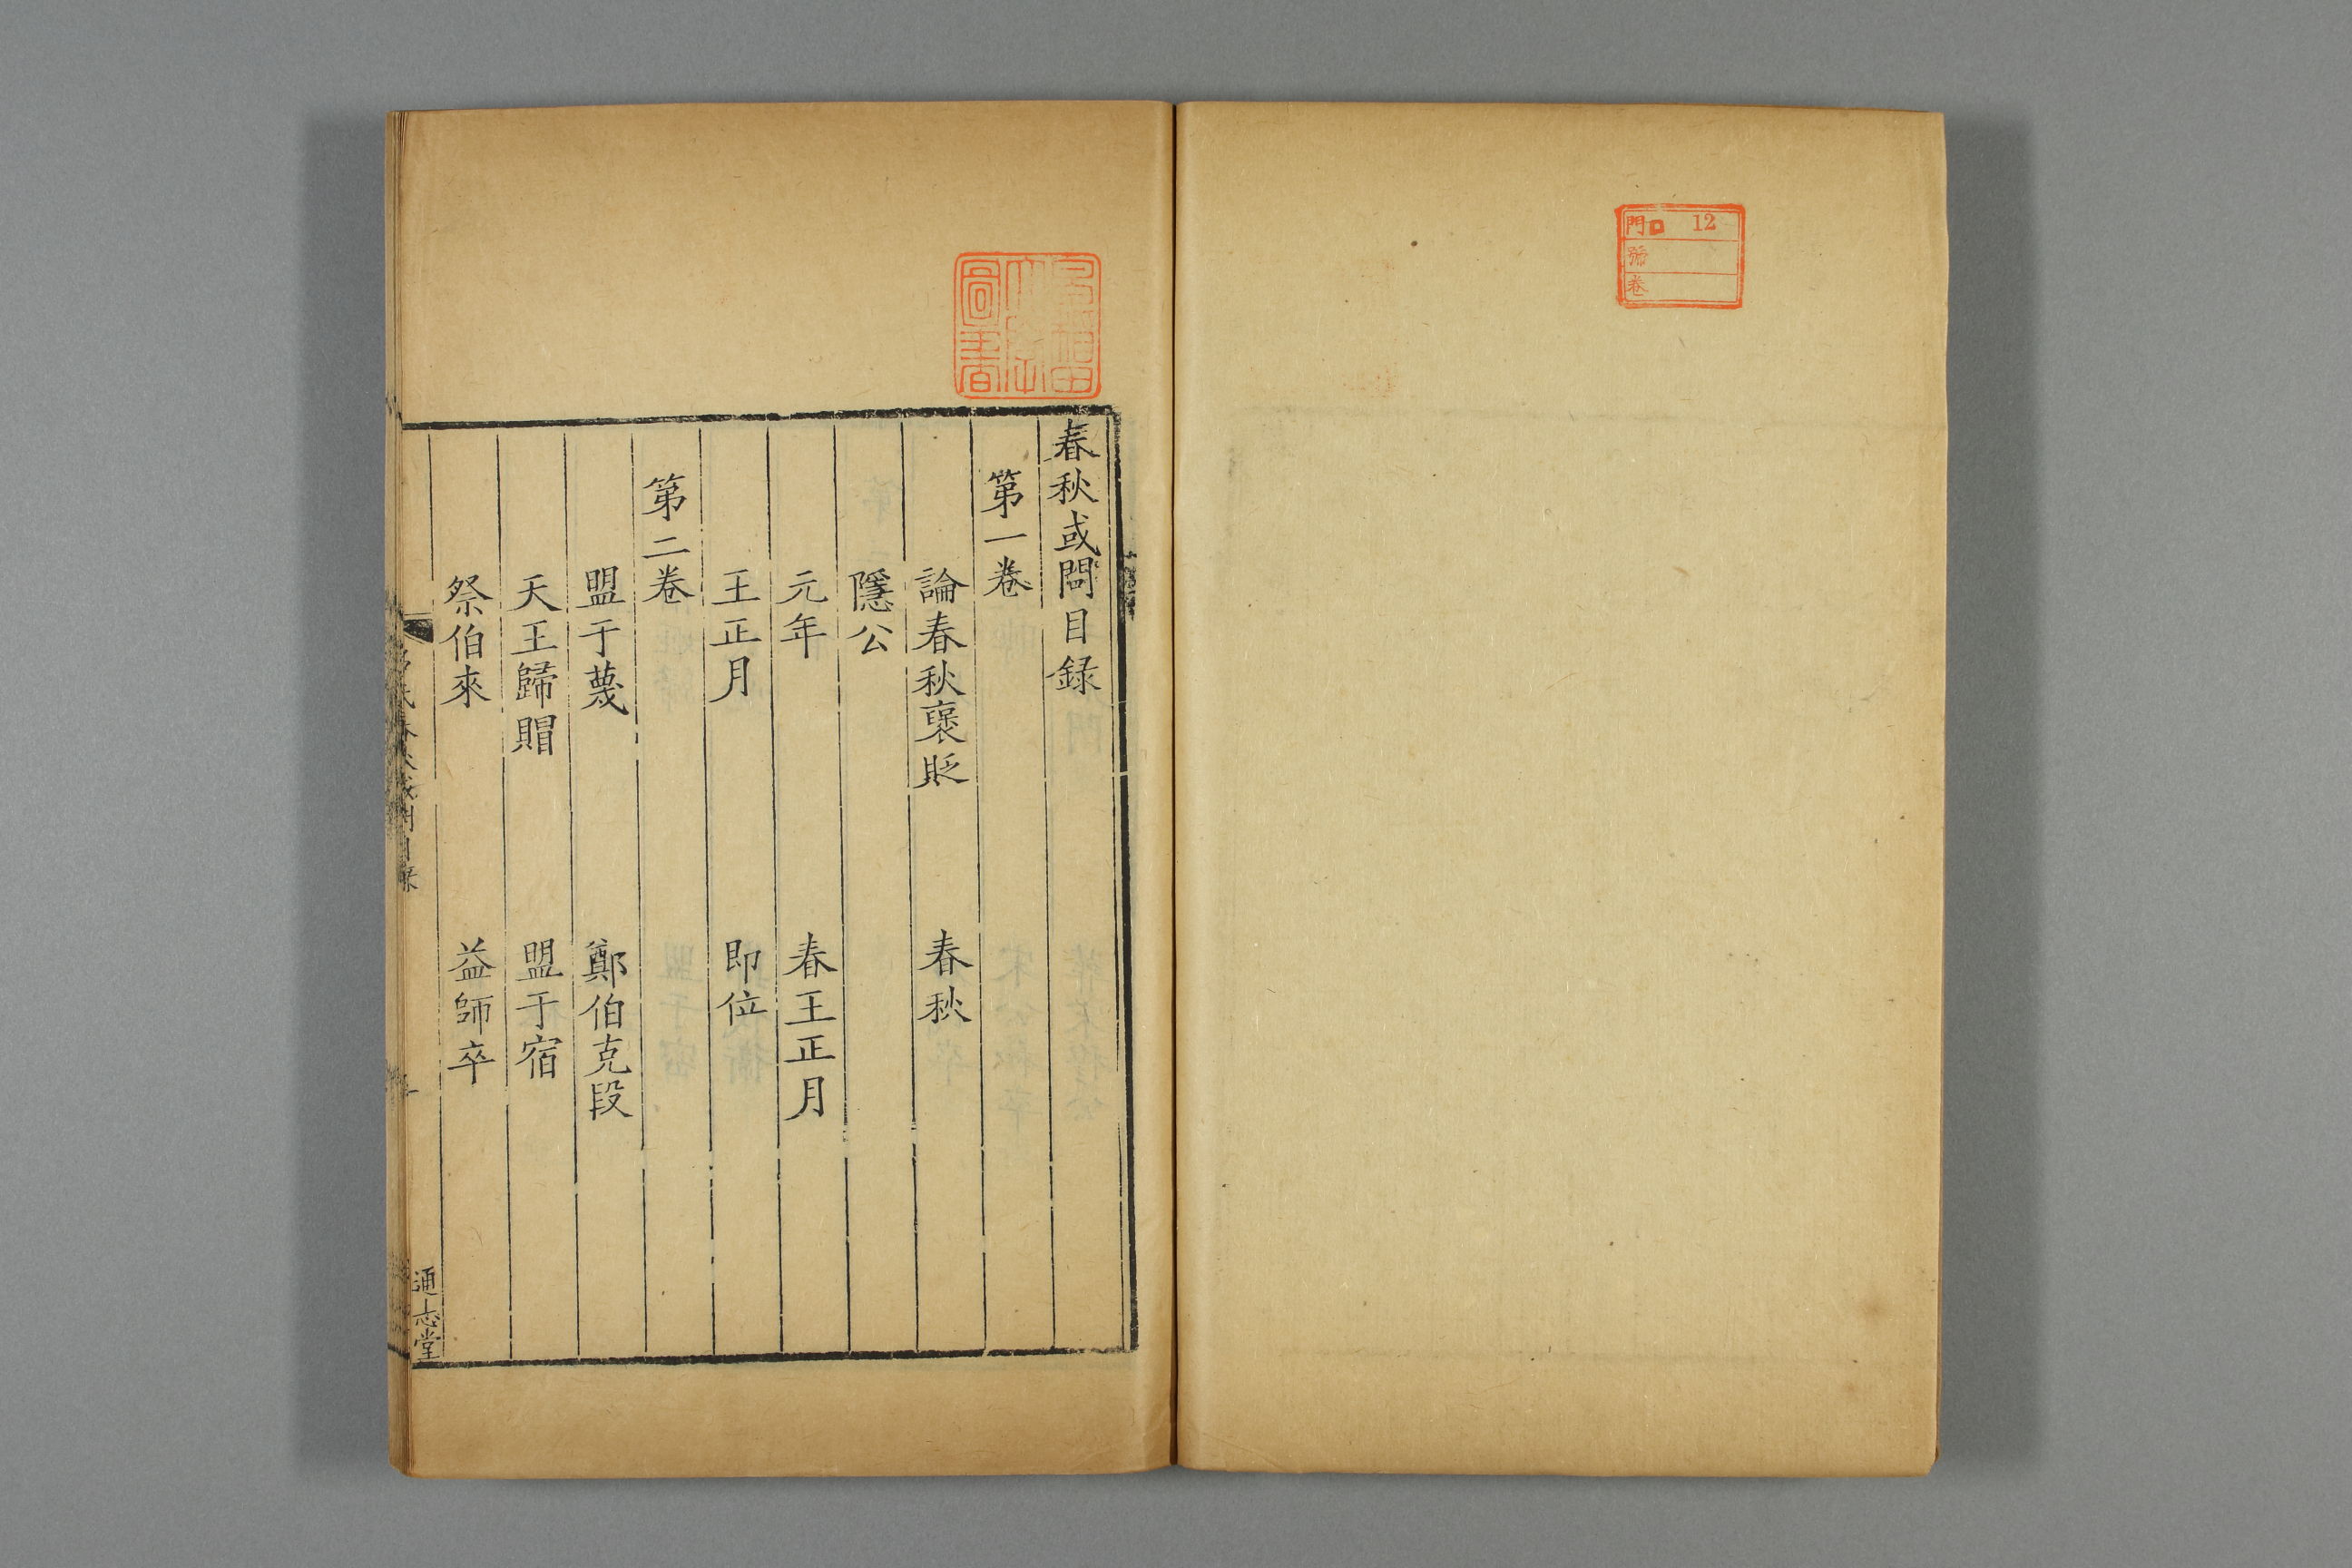 門 12
號
卷
春秋或問目錄
第一卷
論春秋襃貶 春秋
隱公
元年 春王正月
王正月 即位
第二卷
盟于蔑 鄭伯克段
天王歸賵 盟于宿
祭伯來 益師卒
通志堂